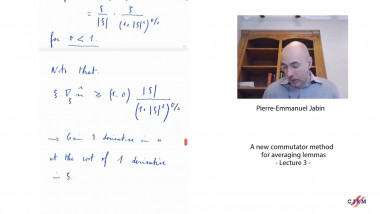 = ξ/|ξ| · ξ/(1+|ξ|²)^{θ/2}
for θ < 1.
Note that
ξ · ∇_ξ ≥ (1-θ) |ξ|/(1+|ξ|²)^{θ/2}
→ Gain 1 derivative in x
at the cost of 1 derivative
in ξ
Pierre-Emmanuel Jabin
A new commutator method
for averaging lemmas
- Lecture 3 -
CIRM